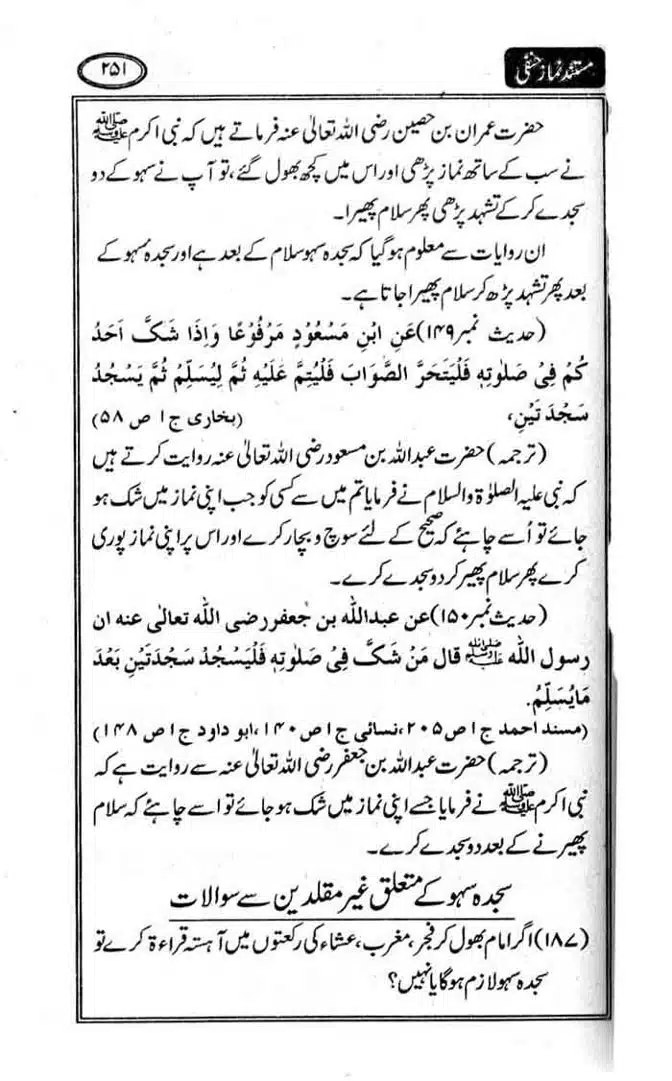 مستند نماز حنفی
۲۵۱
حضرت عمران بن حصین رضی اللہ تعالیٰ عنہ فرماتے ہیں کہ نبی اکرم ﷺ
نے سب کے ساتھ نماز پڑھی اور اس میں کچھ بھول گئے، تو آپ نے سہو کے دو
سجدے کر کے تشہد پڑھی پھر سلام پھیرا۔
ان روایات سے معلوم ہو گیا کہ سجدہ سہو سلام کے بعد ہے اور سجدہ سہو کے
بعد پھر تشہد پڑھ کر سلام پھیرا جاتا ہے۔
(حدیث نمبر ۱۴۹) عَنِ ابْنِ مَسْعُوْدٍ مَرْفُوْعًا وَإِذَا شَكَّ اَحَدُ
كُمْ فِىْ صَلٰوتِهٖ فَلْيَتَحَرَّ الصَّوَابَ فَلْيُتِمَّ عَلَيْهِ ثُمَّ لِيُسَلِّمْ ثُمَّ يَسْجُدُ
سَجْدَتَيْنِ، (بخاری ج ۱ ص ۵۸)
(ترجمہ) حضرت عبداللہ بن مسعود رضی اللہ تعالیٰ عنہ روایت کرتے ہیں
کہ نبی علیہ الصلوٰۃ والسلام نے فرمایا تم میں سے کسی کو جب اپنی نماز میں شک ہو
جائے تو اُسے چاہئے کہ صحیح کے لئے سوچ و بچار کرے اور اس پر اپنی نماز پوری
کرے پھر سلام پھیر کر دو سجدے کرے۔
(حدیث نمبر ۱۵۰) عن عبداللہ بن جعفر رضی اللہ تعالیٰ عنہ ان
رسول اللہ ﷺ قال مَنْ شَكَّ فِىْ صَلٰوتِهٖ فَلْيَسْجُدْ سَجْدَتَيْنِ بَعْدَ
مَايُسَلِّمُ.
(مسند احمد ج ۱ ص ۲۰۵، نسائی ج ۱ ص ۱۴۰، ابو داود ج ۱ ص ۱۴۸)
(ترجمہ) حضرت عبداللہ بن جعفر رضی اللہ تعالیٰ عنہ سے روایت ہے کہ
نبی اکرم ﷺ نے فرمایا جسے اپنی نماز میں شک ہو جائے تو اسے چاہئے کہ سلام
پھیرنے کے بعد دو سجدے کرے۔
سجدہ سہو کے متعلق غیر مقلدین سے سوالات
(۱۸۷) اگر امام بھول کر فجر، مغرب، عشاء کی رکعتوں میں آہستہ قراءۃ کرے تو
سجدہ سہو لازم ہو گا یا نہیں؟